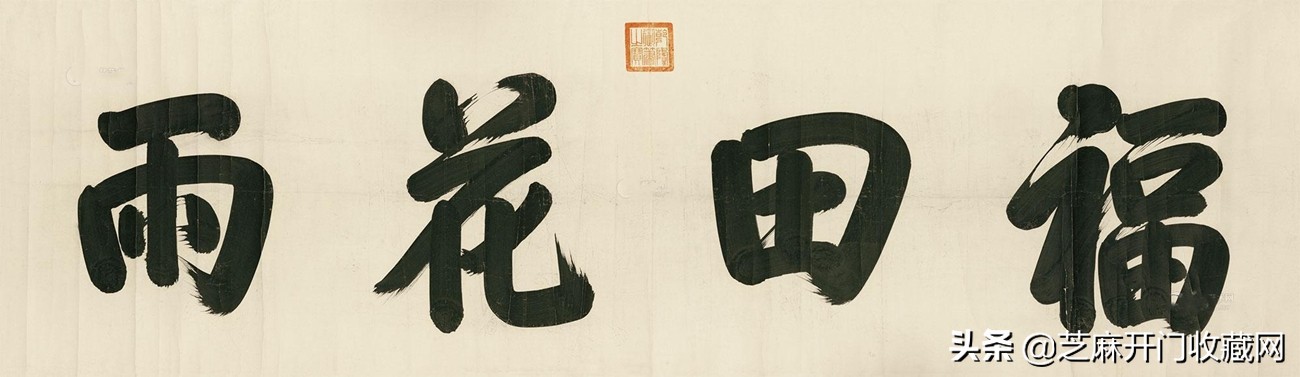 福田花雨
头条 @芝麻开门收藏网